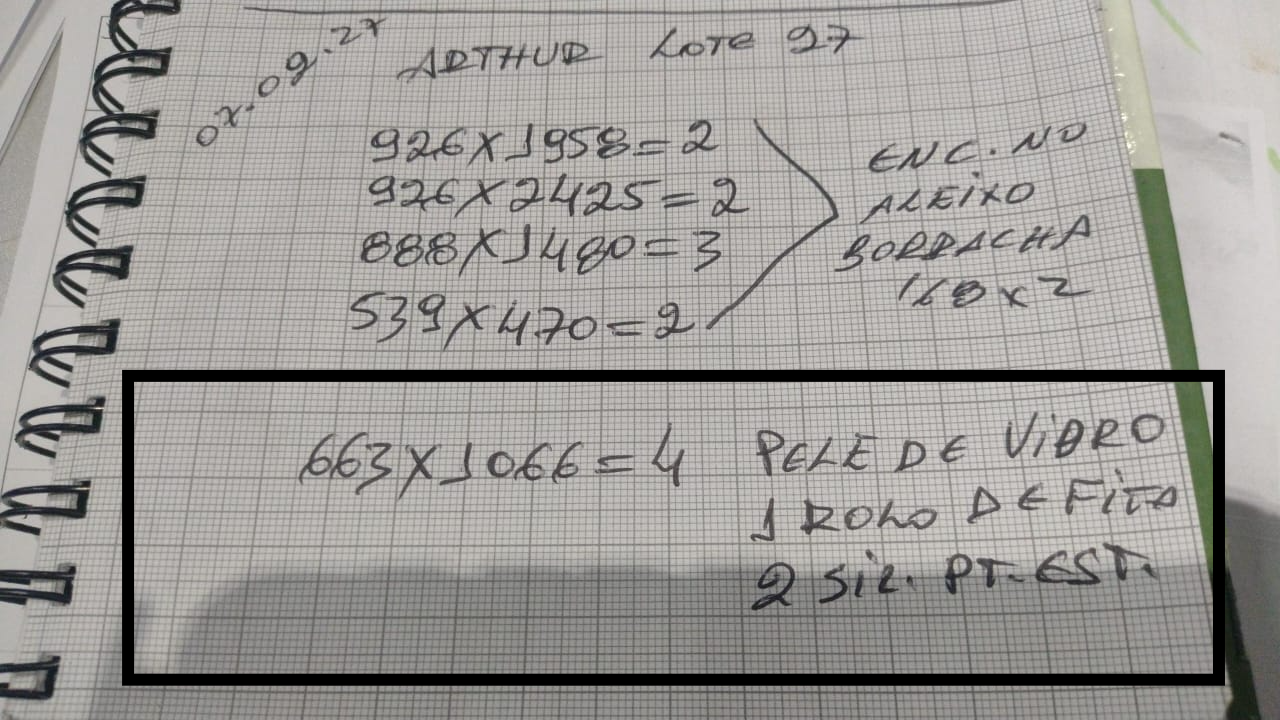 ARTHUR LOTE 97
926X1958=2
926X2425=2
888X1480=3
539X470=2
ENC. NO
ALEIXO
BORRACHA
168X2
663X1066=4 PELE DE VIDRO
1 ROLO DE FITA
2 SIL. PT. EST.